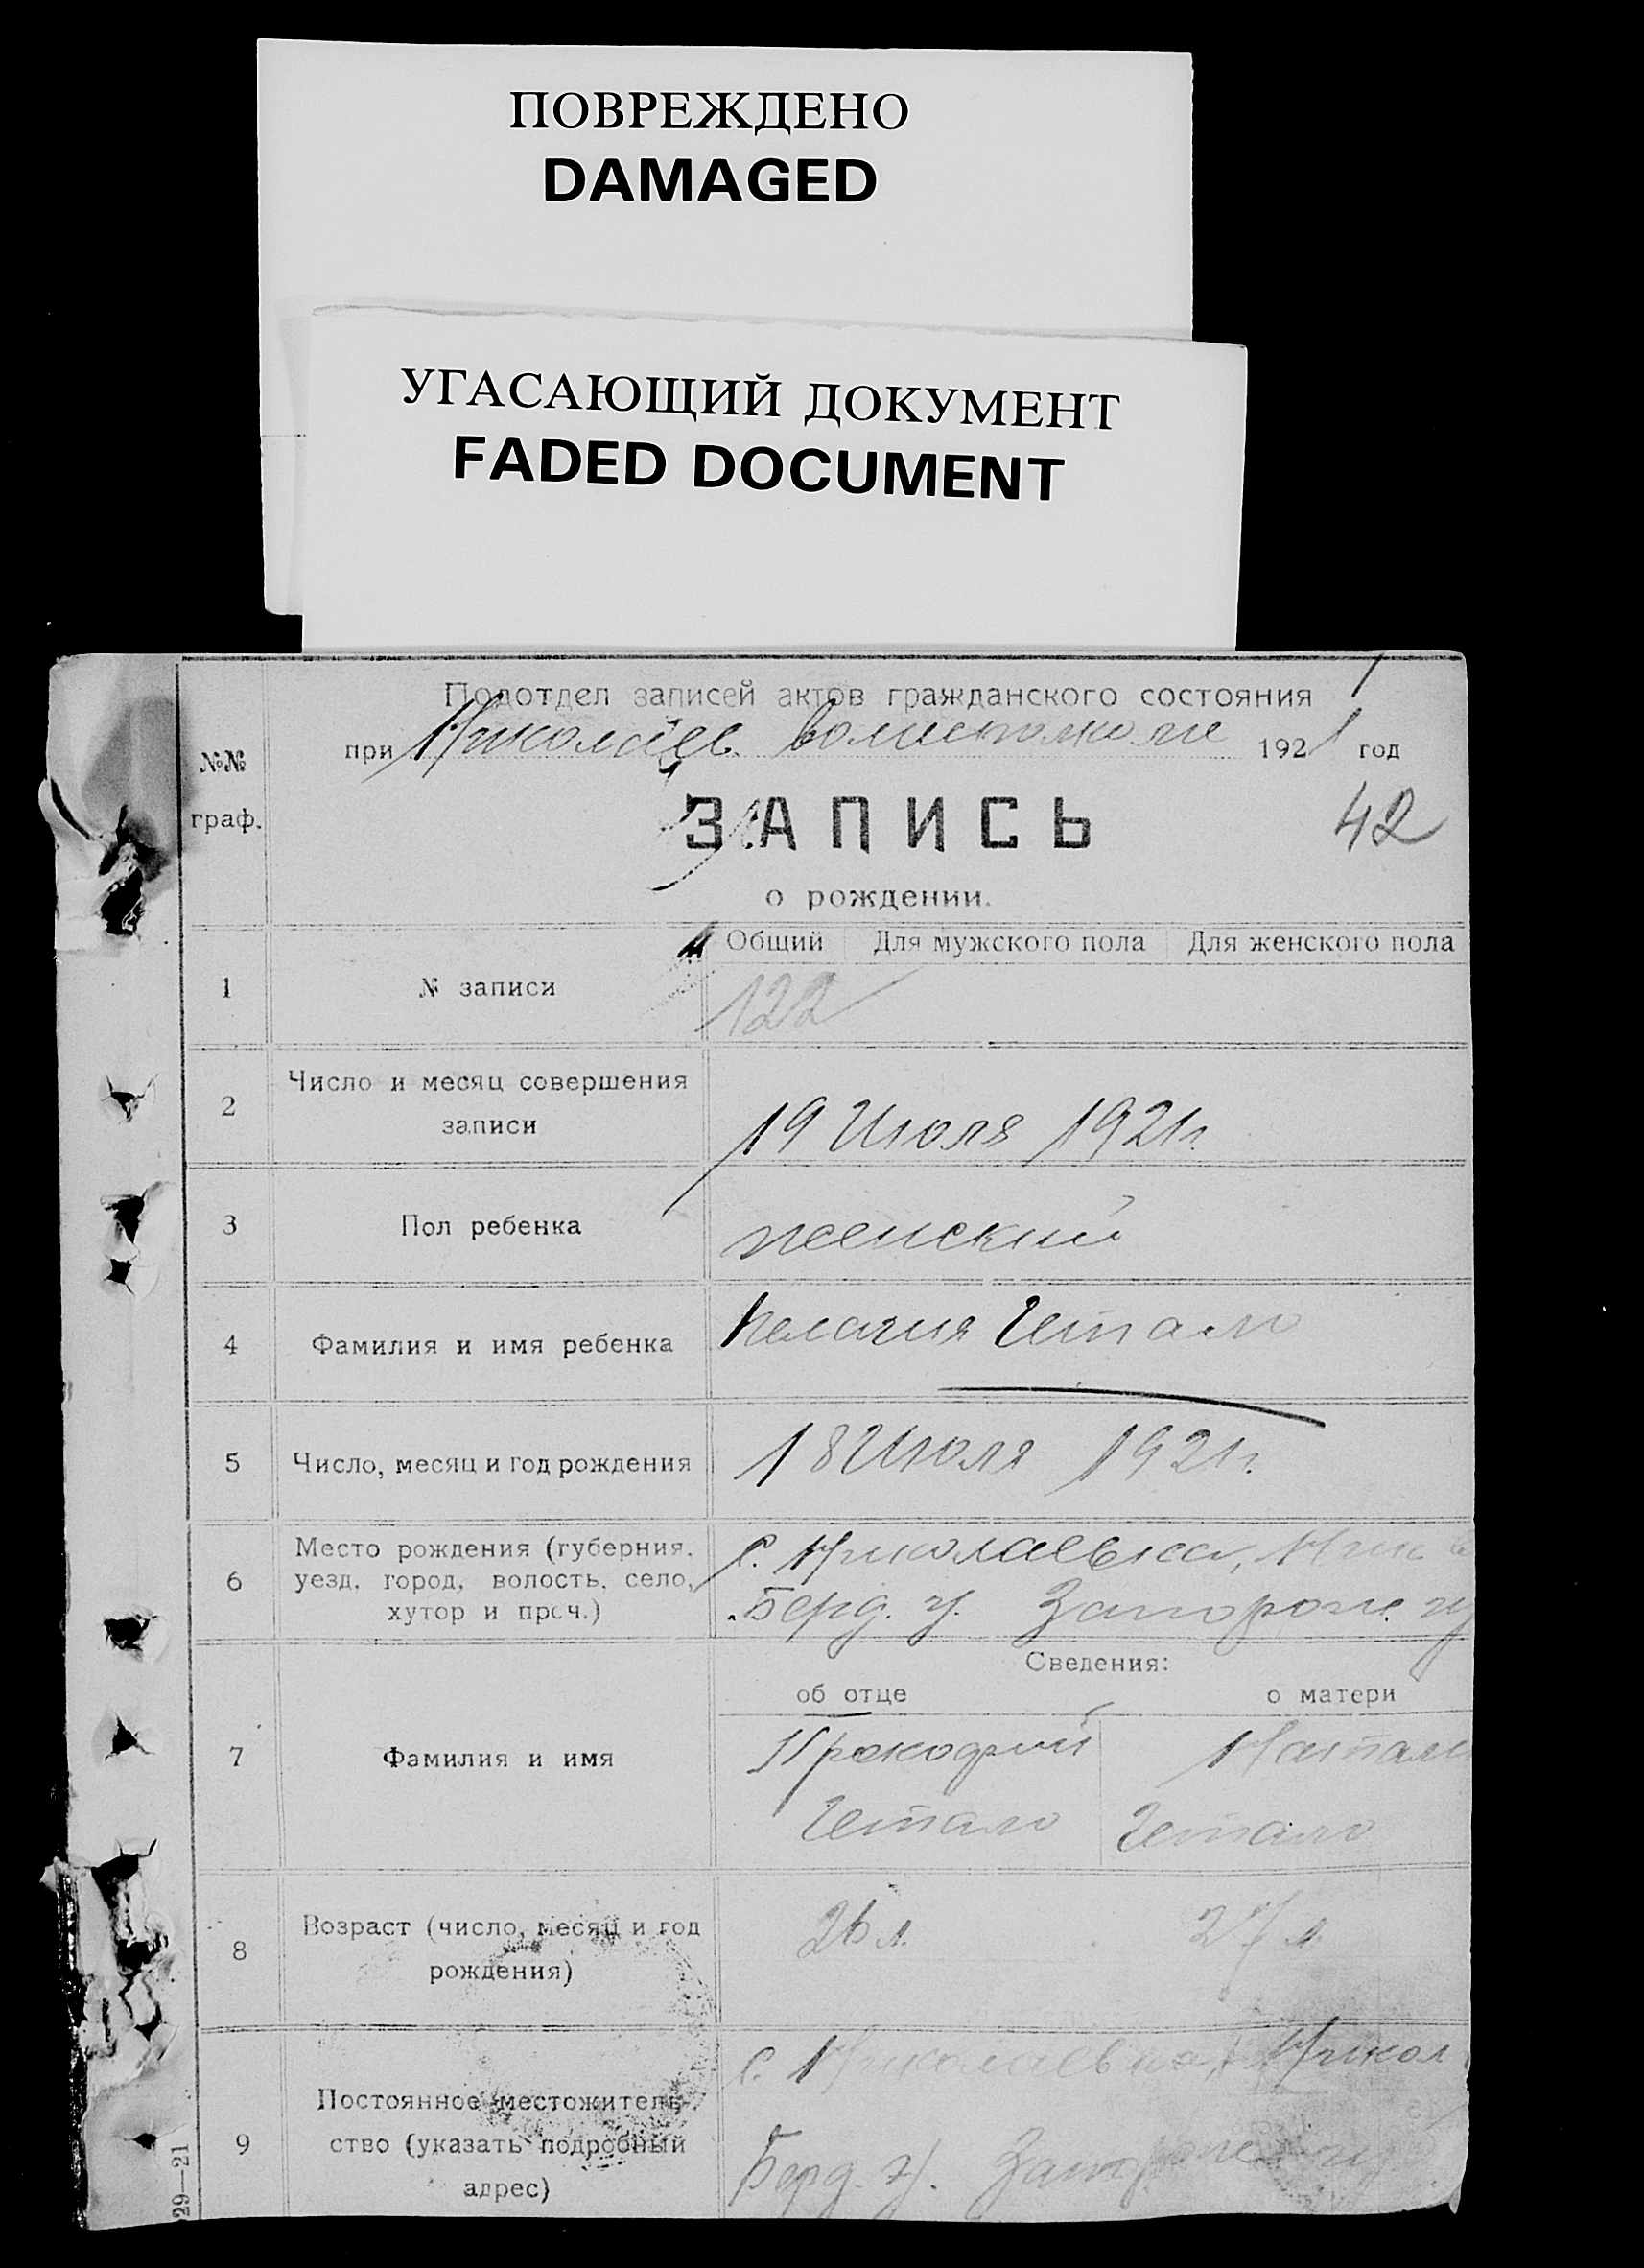 ПОВРЕЖДЕНО
DAMAGED
УГАСАЮЩИЙ ДОКУМЕНТ
FADED DOCUMENT
Подотдел записей актов гражданского состояния
при Николаев. волисполкоме 1921 год
№№
граф.
42
ЗАПИСЬ
о рождении.
Общий Для мужского пола Для женского пола
1 № записи 122
2 Число и месяц совершения
записи
19 Июля 1921 г.
3 Пол ребенка женский
4 Фамилия и имя ребенка Пелагия Гетало
5 Число, месяц и год рождения 18 Июля 1921 г.
6 Место рождения (губерния,
уезд, город, волость, село,
хутор и проч.)
с. Николаевка, Ник в
Берд. у. Запорож. гу
Сведения:
об отце о матери
7 Фамилия и имя
Прокофий Натали
Гетало Гетало
8 Возраст (число, месяц и год
рождения)
26 л. 27 л.
9 Постоянное местожитель-
ство (указать подробный
адрес)
с. Николаевка, Никол
Берд. у. Запорож. гу
29—21